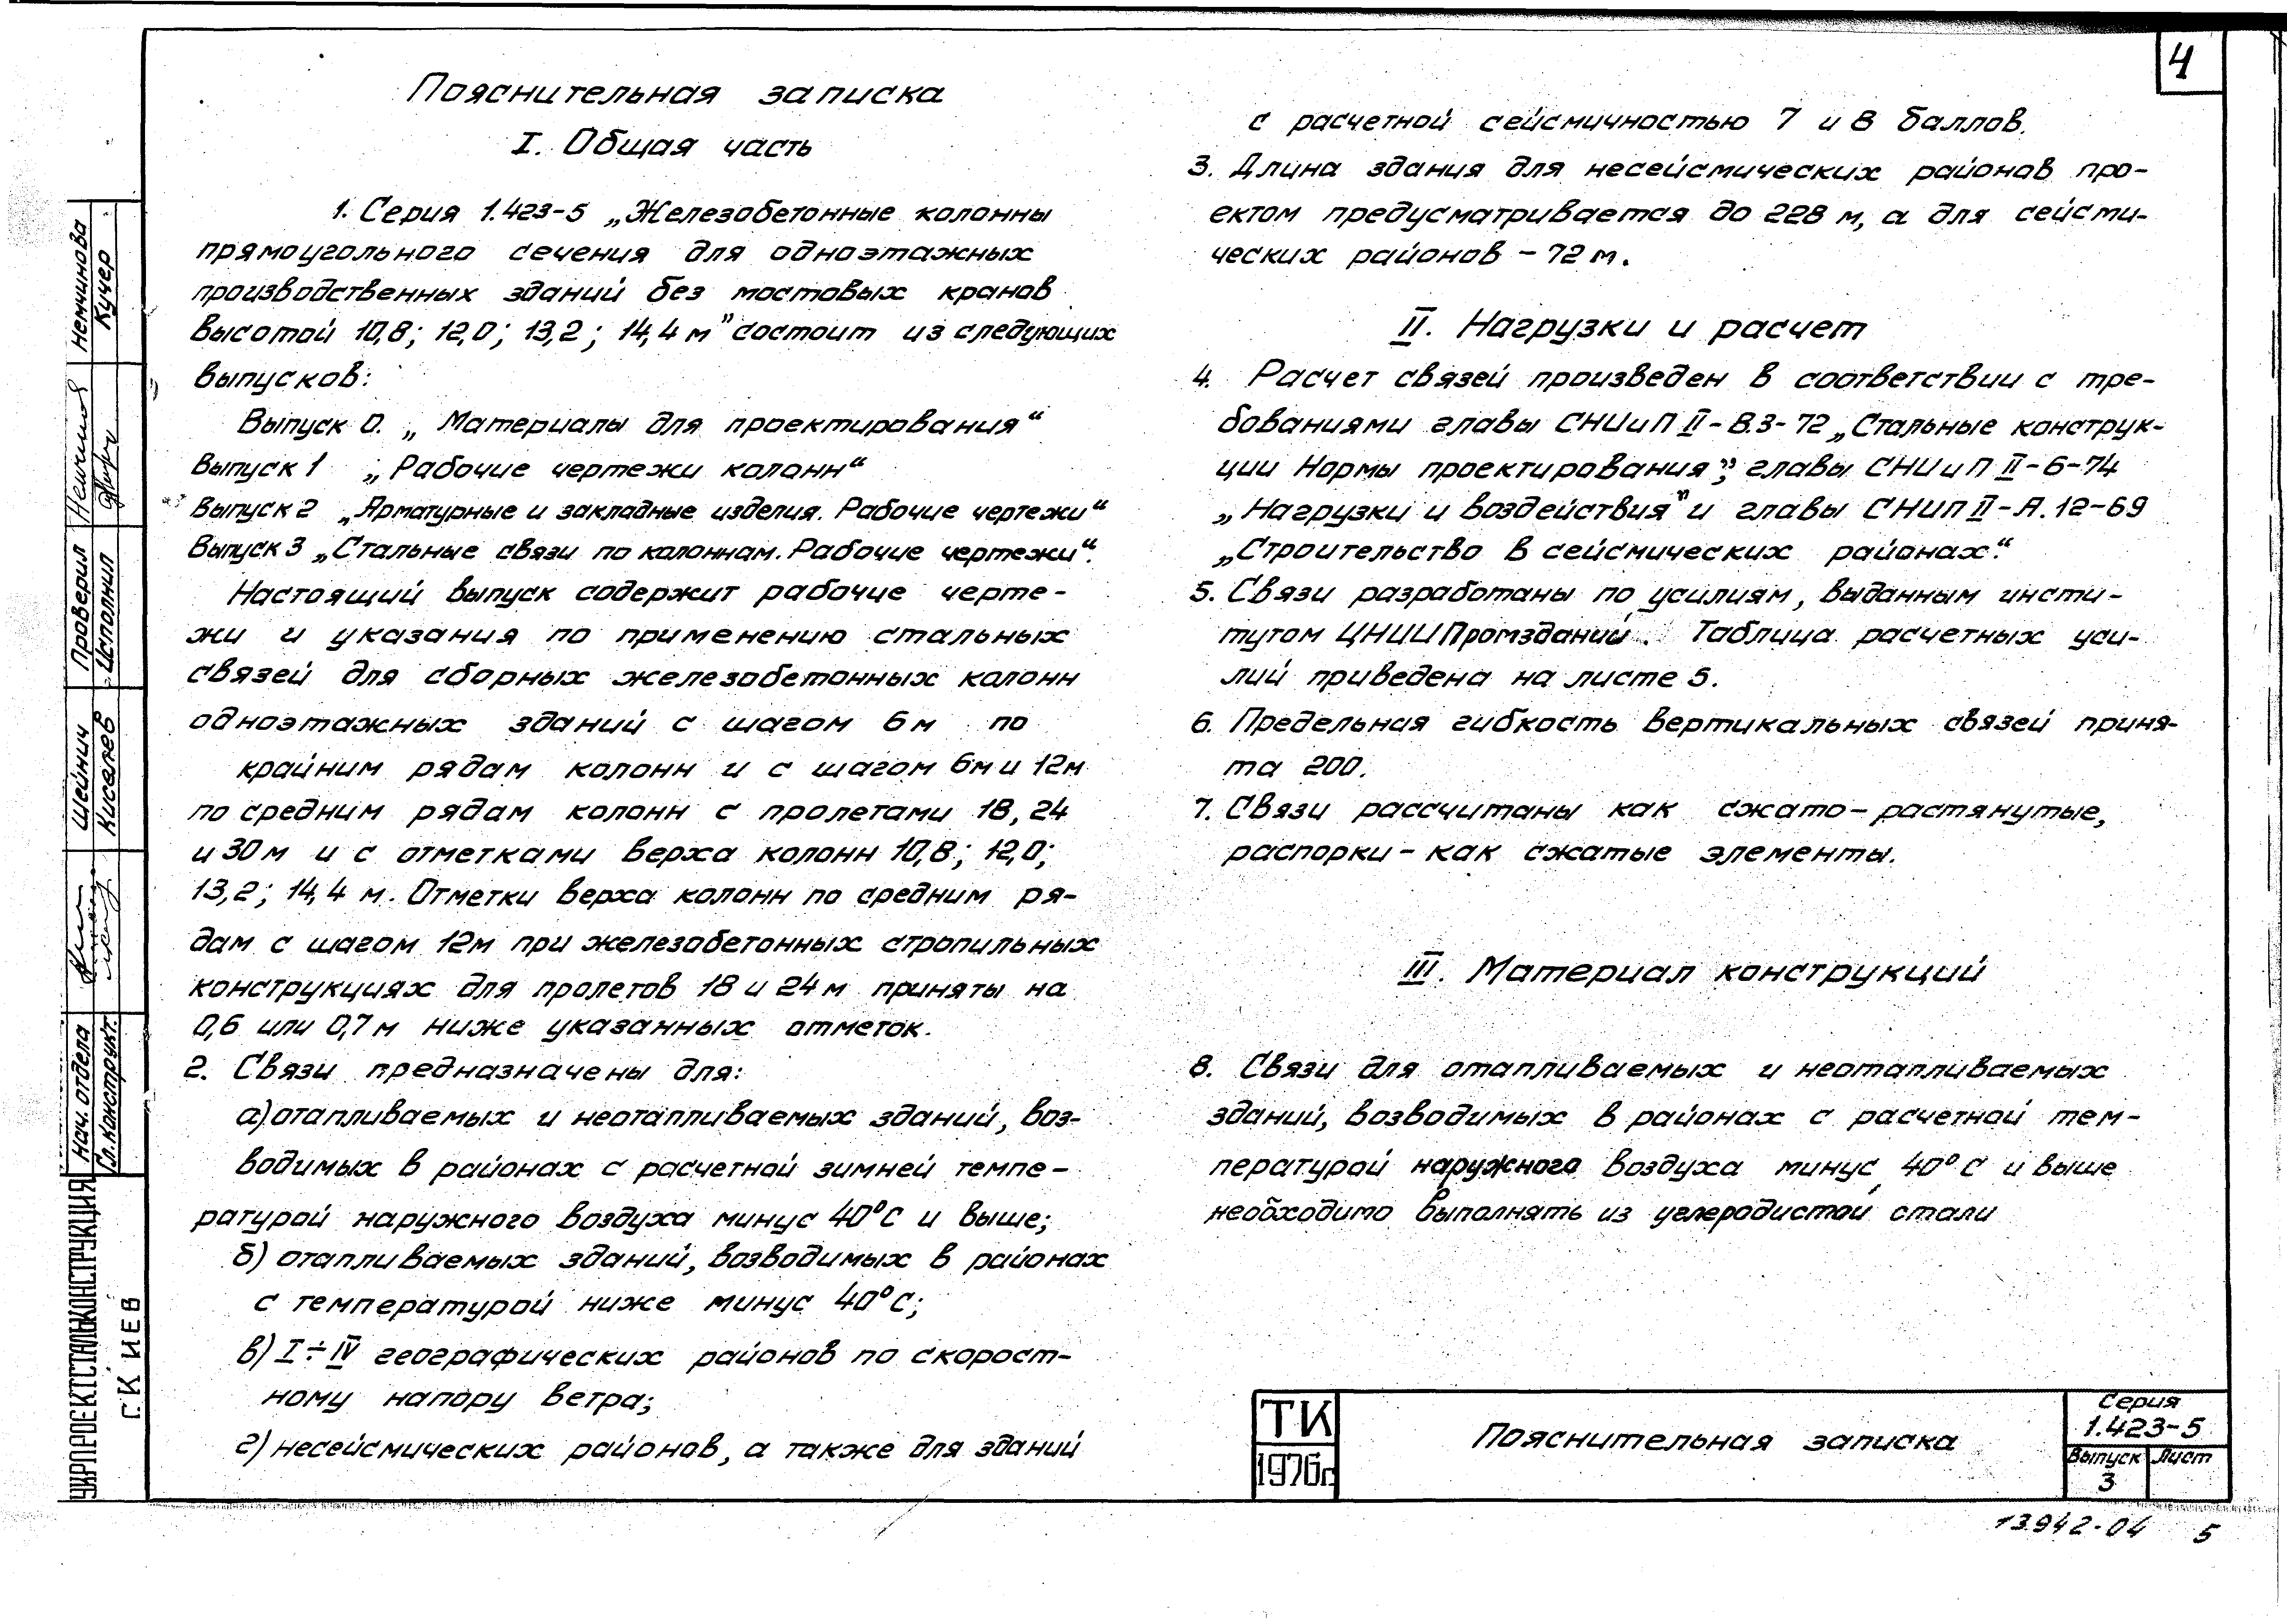 4
Пояснительная записка
I. Общая часть
1. Серия 1.423-5 „Железобетонные колонны
прямоугольного сечения для одноэтажных
производственных зданий без мостовых кранов
высотой 10,8; 12,0; 13,2; 14,4 м" состоит из следующих
выпусков:
Выпуск 0. „Материалы для проектирования“
Выпуск 1 „Рабочие чертежи колонн“
Выпуск 2 „Арматурные и закладные изделия. Рабочие чертежи“
Выпуск 3 „Стальные связи по колоннам. Рабочие чертежи“.
Настоящий выпуск содержит рабочие черте-
жи и указания по применению стальных
связей для сборных железобетонных колонн
одноэтажных зданий с шагом 6м по
крайним рядам колонн и с шагом 6м и 12м
по средним рядам колонн с пролетами 18, 24
и 30м и с отметками верха колонн 10,8; 12,0;
13,2; 14,4 м. Отметки верха колонн по средним ря-
дам с шагом 12м при железобетонных стропильных
конструкциях для пролетов 18 и 24м приняты на
0,6 или 0,7м ниже указанных отметок.
2. Связи предназначены для:
а) отапливаемых и неотапливаемых зданий, воз-
водимых в районах с расчетной зимней темпе-
ратурой наружного воздуха минус 40°С и выше;
б) отапливаемых зданий, возводимых в районах
с температурой ниже минус 40°С;
в) I÷IV географических районов по скорост-
ному напору ветра;
г) несейсмических районов, а также для зданий
с расчетной сейсмичностью 7 и 8 баллов.
3. Длина здания для несейсмических районов про-
ектом предусматривается до 228 м, а для сейсми-
ческих районов – 72 м.
II. Нагрузки и расчет
4. Расчет связей произведен в соответствии с тре-
бованиями главы СНИиП II-В.3-72 „Стальные конструк-
ции Нормы проектирования", главы СНИиП II-6-74
„Нагрузки и воздействия" и главы СНиП II-А.12-69
„Строительство в сейсмических районах“.
5. Связи разработаны по усилиям, выданным инсти-
тутом ЦНИИПромзданий. Таблица расчетных уси-
лий приведена на листе 5.
6. Предельная гибкость вертикальных связей приня-
та 200.
7. Связи рассчитаны как сжато-растянутые,
распорки – как сжатые элементы.
III. Материал конструкций
8. Связи для отапливаемых и неотапливаемых
зданий, возводимых в районах с расчетной тем-
пературой наружного воздуха минус 40°С и выше
необходимо выполнять из углеродистой стали
ТК
1976г
Пояснительная записка
Серия
1.423-5
Выпуск Лист
3
13942-04 5
Немчинова
Кучер
Проверил
Исполнил
Шейнич
Киселев
Нач. отдела
Гл. конструкт.
УКРПРОЕКТСТАЛЬКОНСТРУКЦИЯ
г. КИЕВ